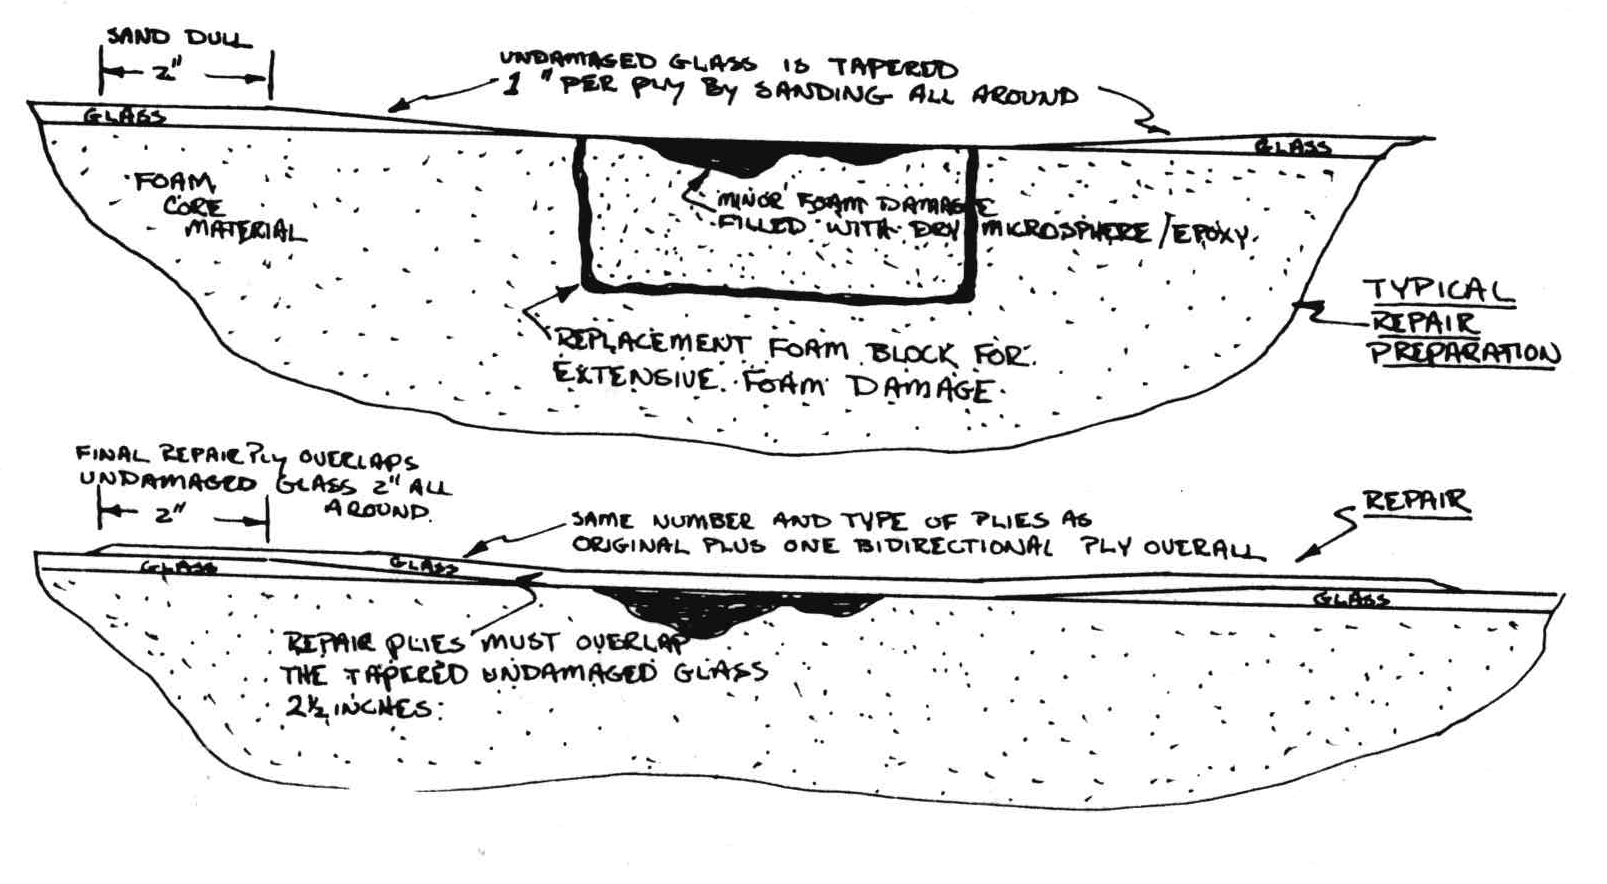 SAND DULL
2"
UNDAMAGED GLASS IS TAPERED
1" PER PLY BY SANDING ALL AROUND
GLASS
GLASS
FOAM
CORE
MATERIAL
MINOR FOAM DAMAGE
FILLED WITH DRY MICROSPHERE/EPOXY.
REPLACEMENT FOAM BLOCK FOR
EXTENSIVE FOAM DAMAGE
TYPICAL
REPAIR
PREPARATION
FINAL REPAIR PLY OVERLAPS
UNDAMAGED GLASS 2" ALL
AROUND.
2"
SAME NUMBER AND TYPE OF PLIES AS
ORIGINAL PLUS ONE BIDIRECTIONAL PLY OVERALL
REPAIR
GLASS
GLASS
GLASS
REPAIR PLIES MUST OVERLAP
THE TAPERED UNDAMAGED GLASS
2½ INCHES.